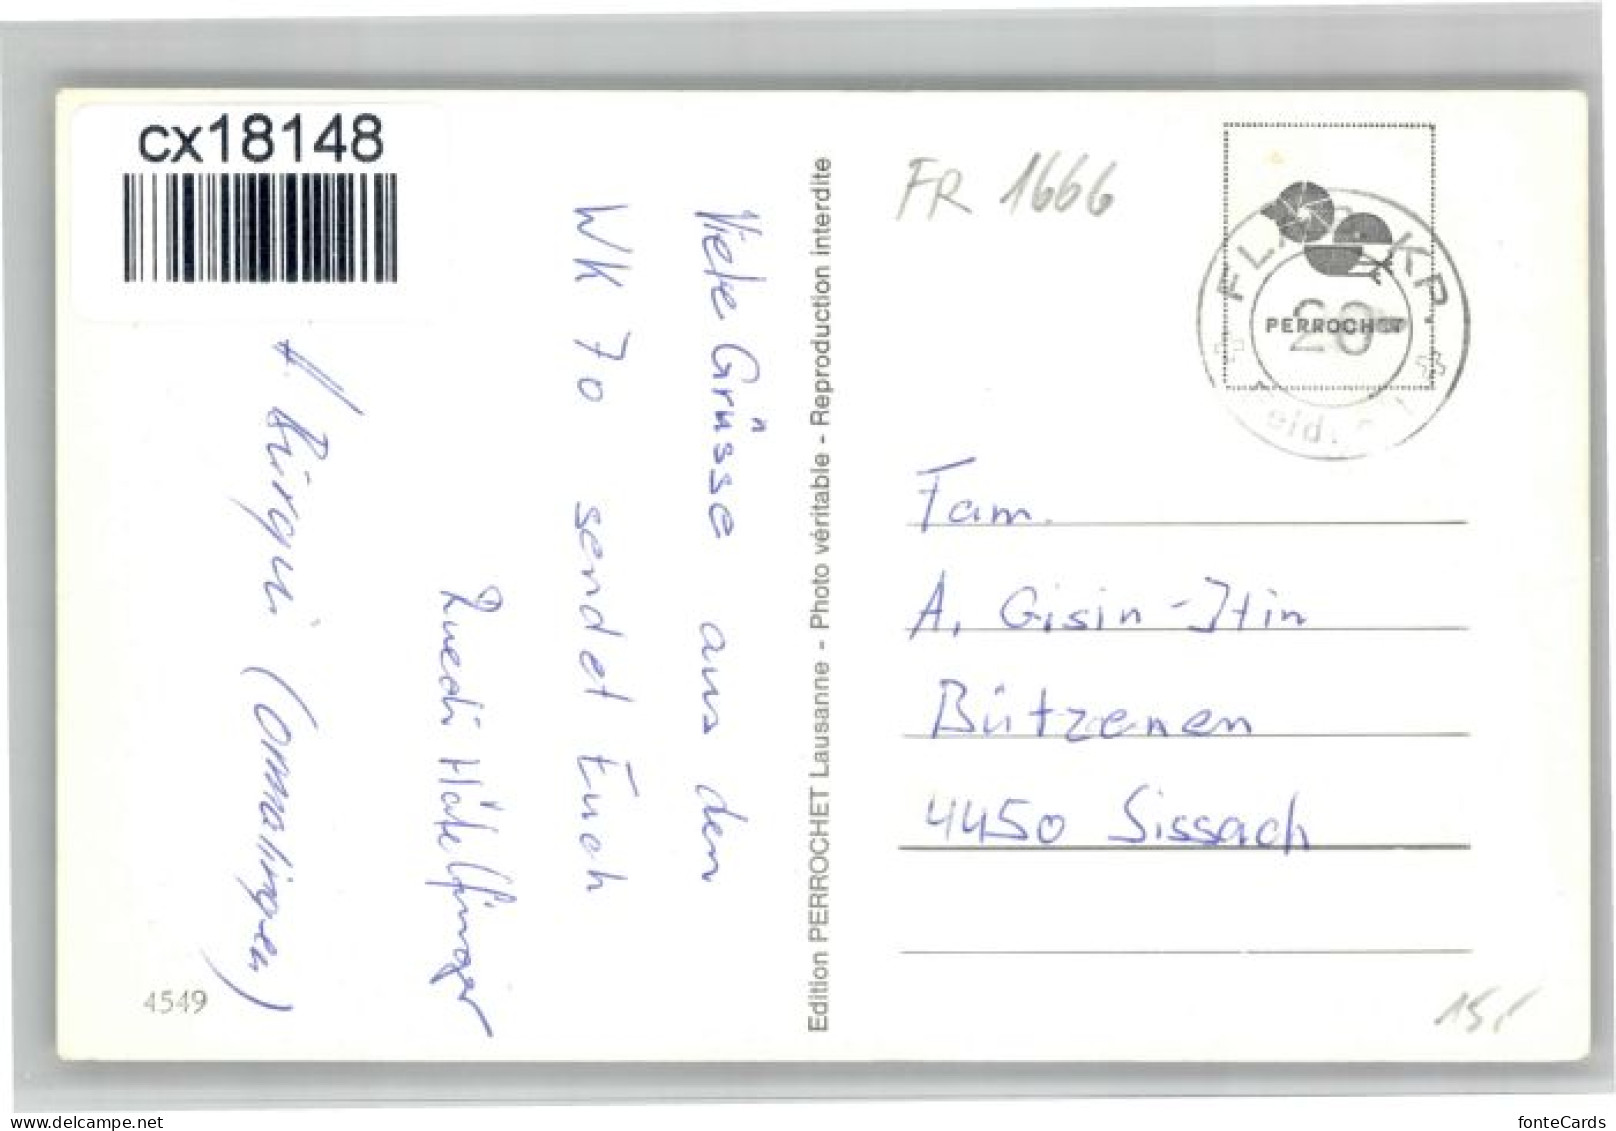 cx18148
Viele Grüsse aus den
WK 70 sendet Euch
Ruedi Häfelfinger
(Ormalingen)
4549
Edition PERROCHET Lausanne - Photo véritable - Reproduction interdite
FR 1666
PERROCHET
KP.
20
Fam.
A. Gisin-Itin
Bützenen
4450 Sissach
15,-
fonteCards
https://www.delcampe.net